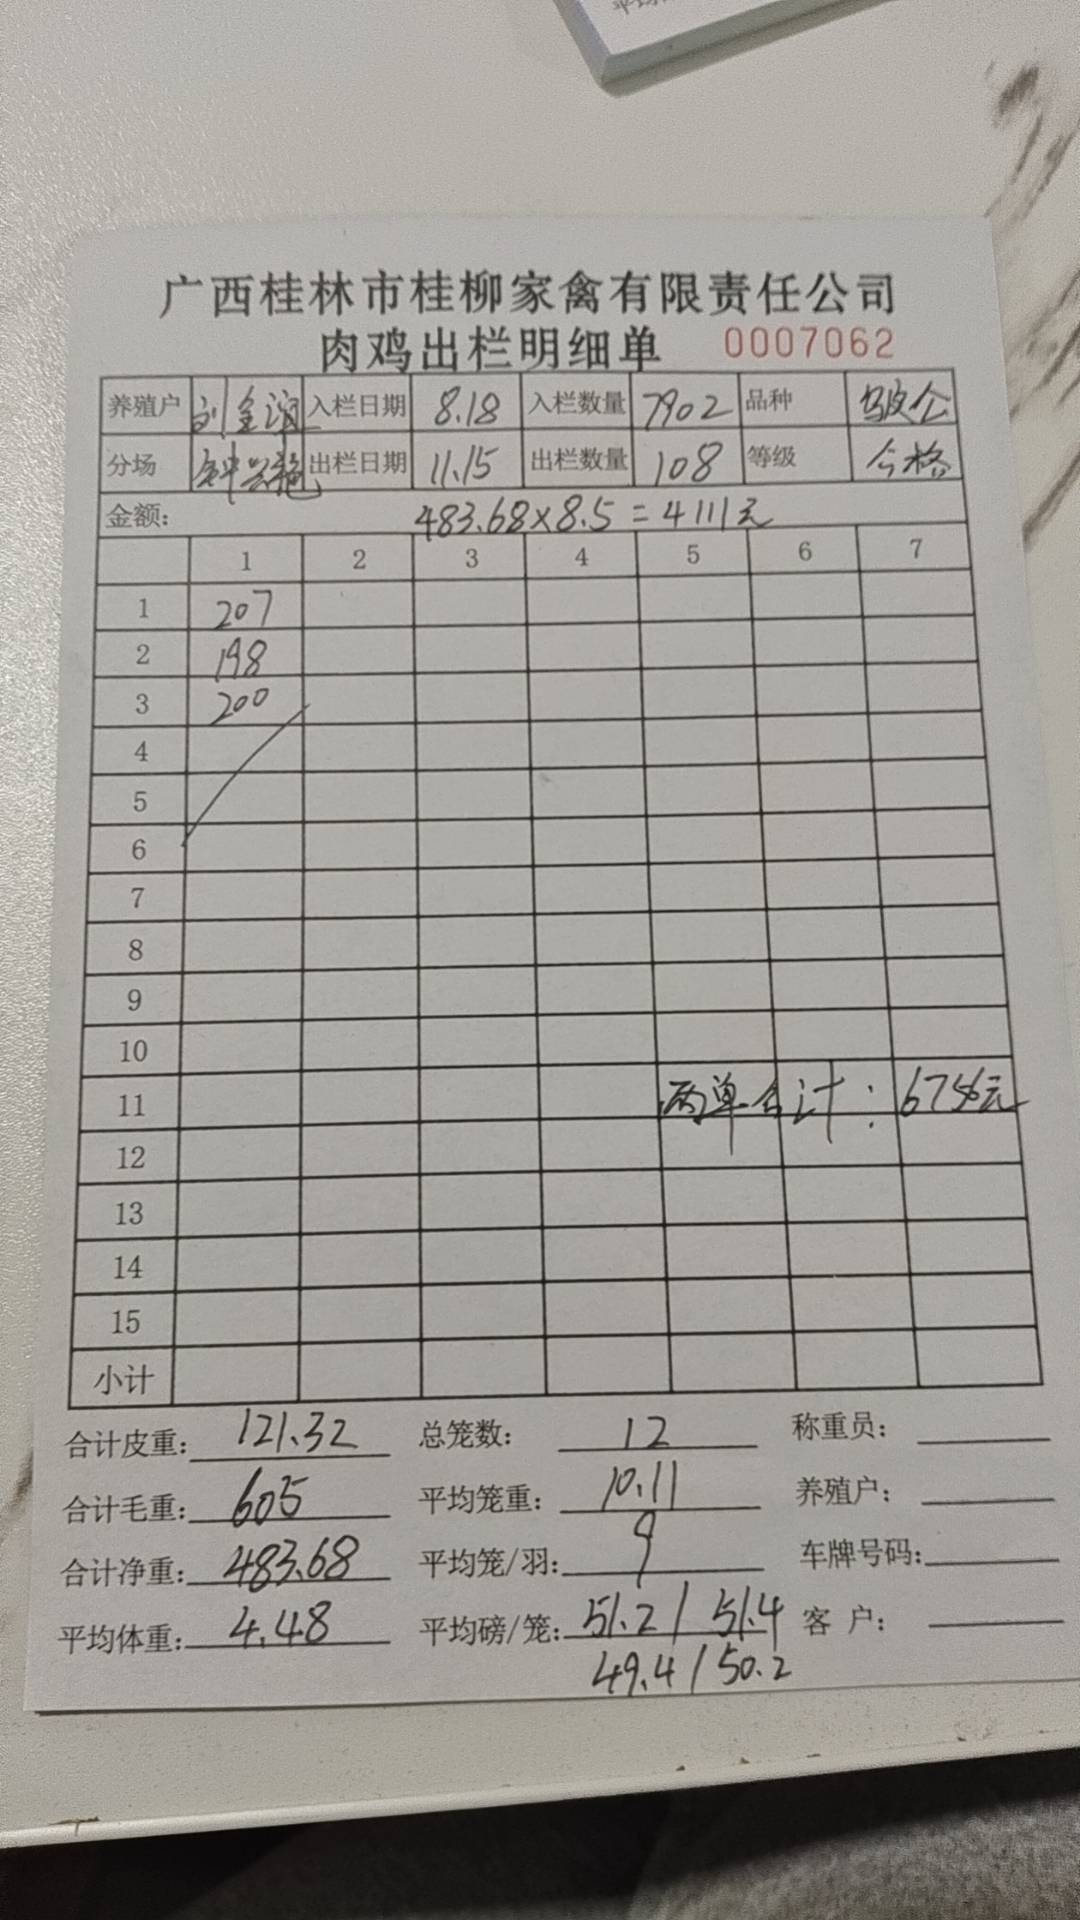 广西桂林市桂柳家禽有限责任公司
肉鸡出栏明细单 0007062
养殖户 刘金润 入栏日期 8.18 入栏数量 7902 品种 公
分场 钟兴 出栏日期 11.15 出栏数量 108 等级 合格
金额: 483.68×8.5=4111元
1 2 3 4 5 6 7
1 207
2 198
3 200
4
5
6
7
8
9
10
11 两单合计: 6756元
12
13
14
15
小计
合计皮重: 121.32 总笼数: 12 称重员:
合计毛重: 605 平均笼重: 10.11 养殖户:
合计净重: 483.68 平均笼/羽: 9 车牌号码:
平均体重: 4.48 平均磅/笼: 51.2/51.4 客户:
49.4/50.2